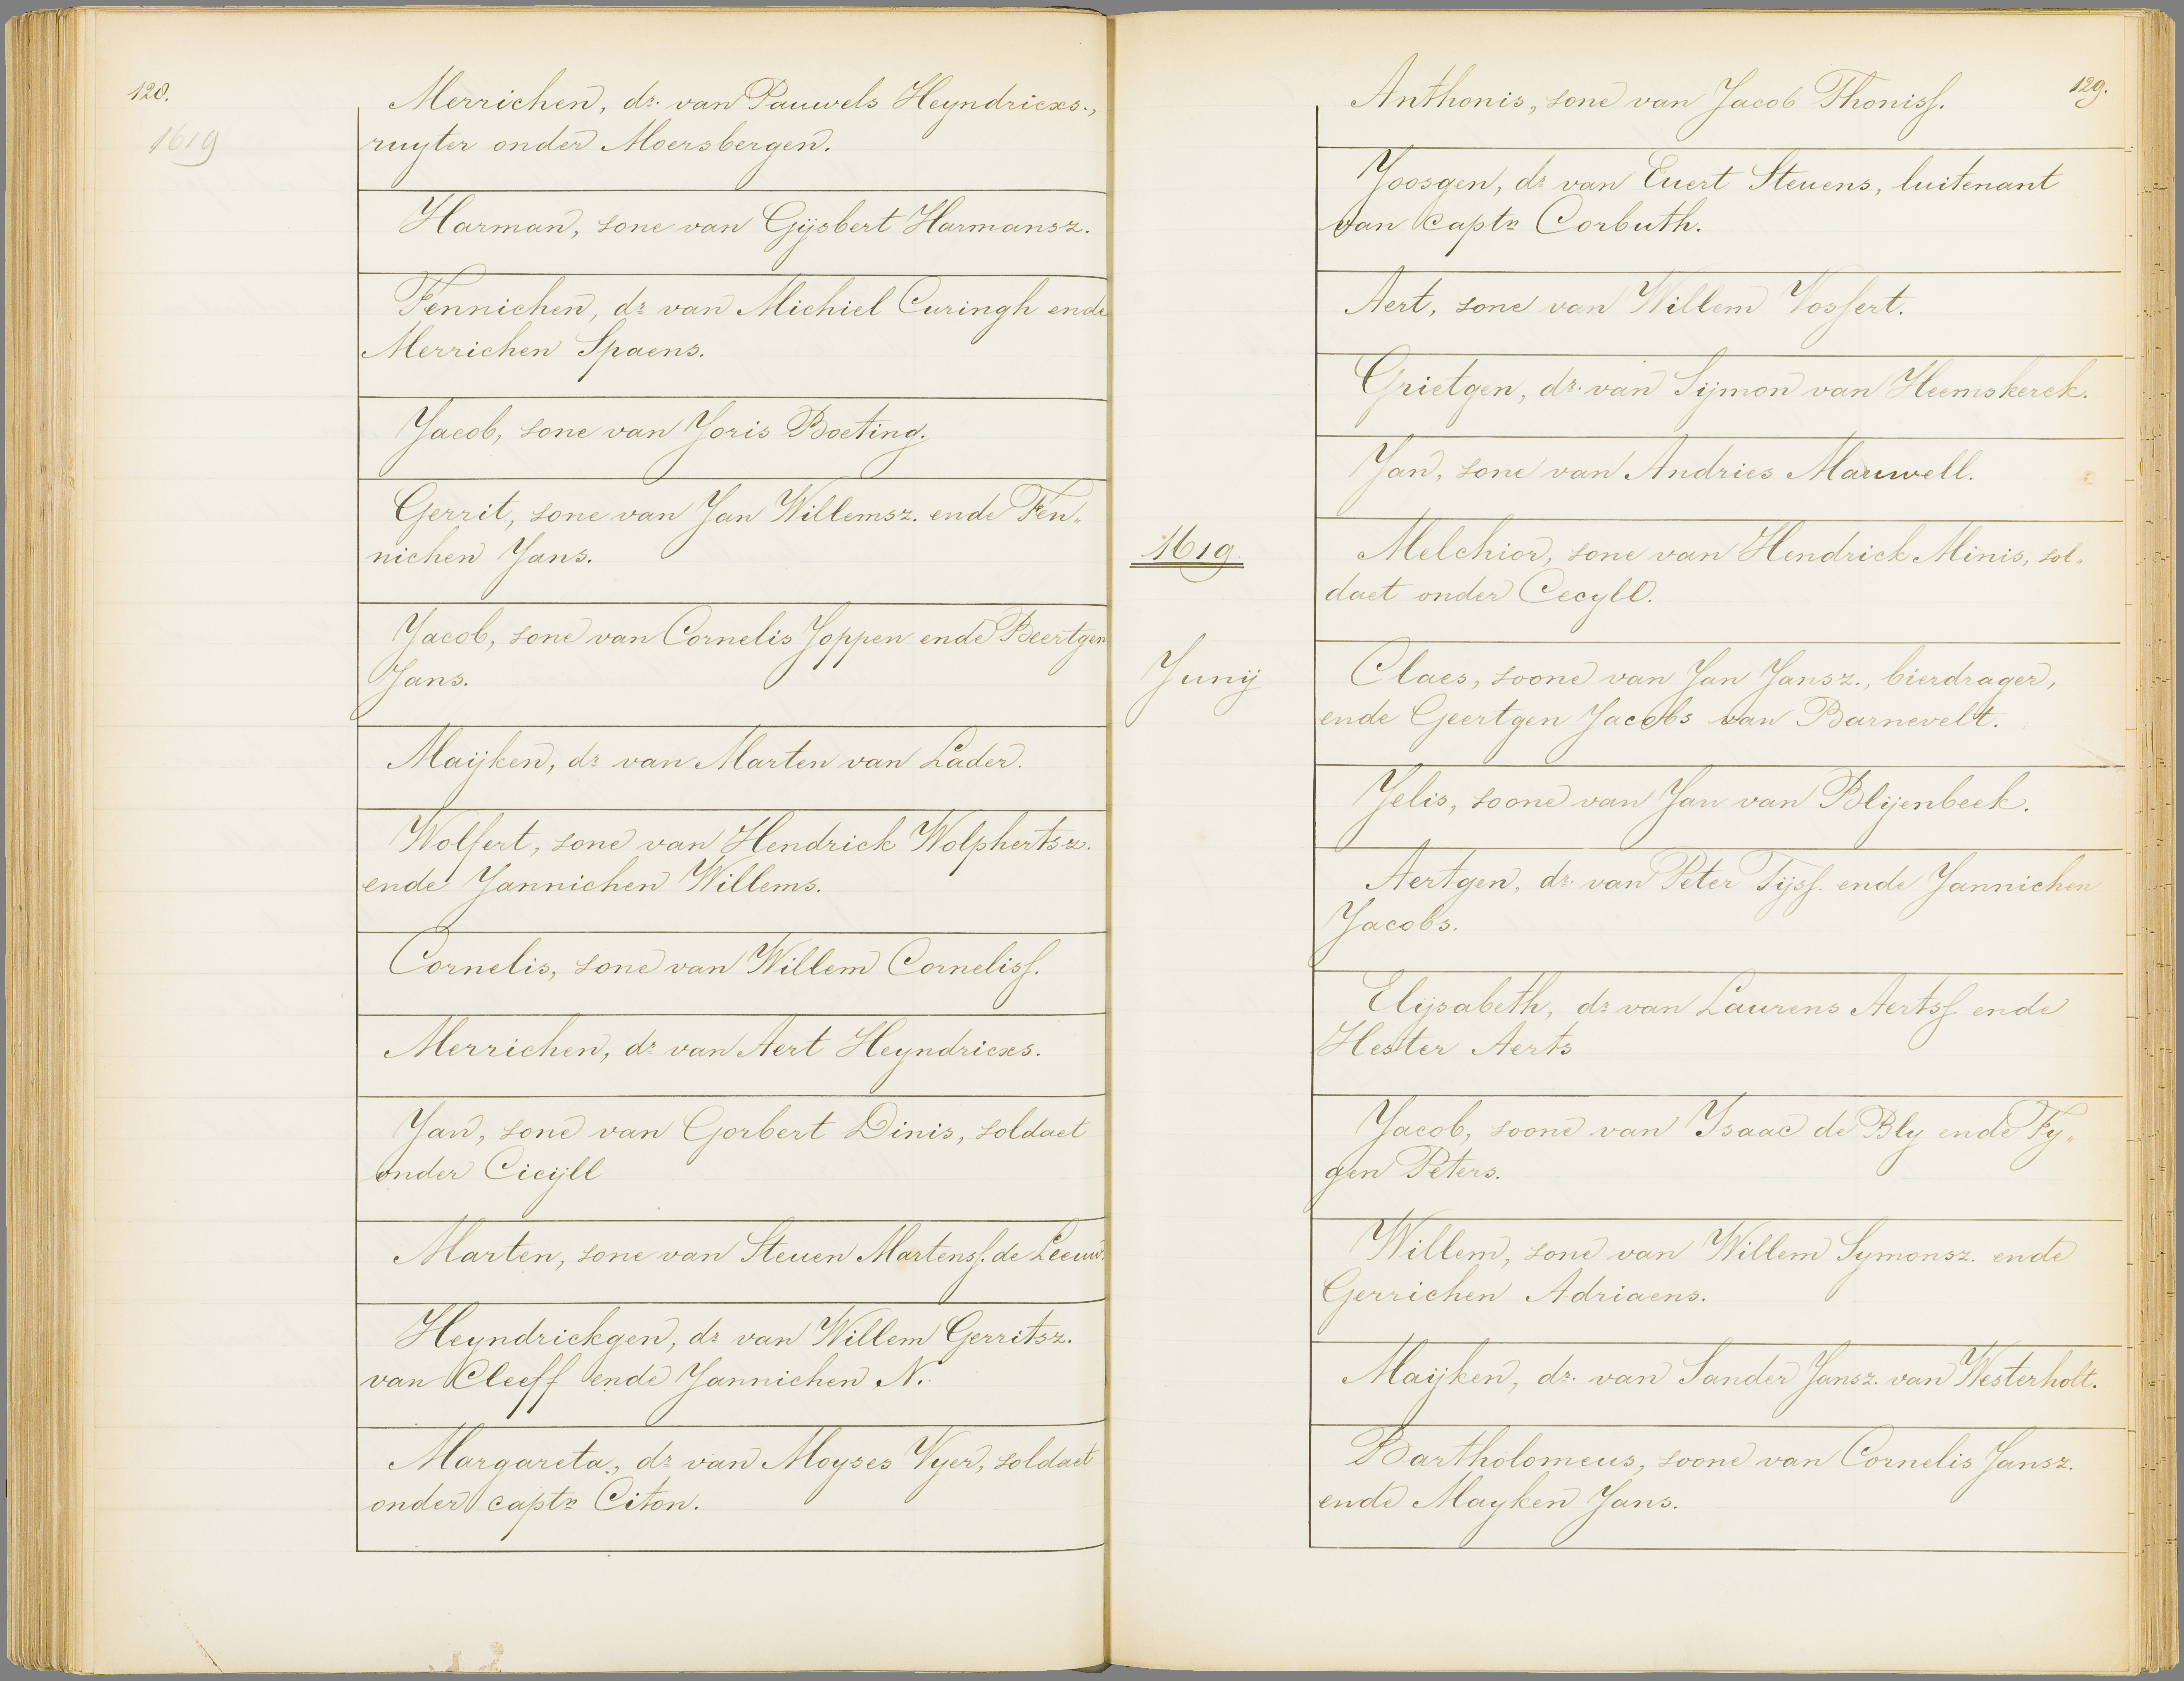 128.
1619
Merrichen, dr. van Pauwels Heyndricxs.,
ruyter onder Moersbergen.
Harman, sone van Gijsbert Harmansz.
Fennichen, dr van Michiel Curingh ende
Merrichen Spaens.
Jacob, sone van Joris Boeting.
Gerrit, sone van Jan Willemsz. ende Fen„
nichen Jans.
Jacob, sone van Cornelis Joppen ende Beertgen
Jans.
Maijken, dr van Marten van Lader.
Wolfert, sone van Hendrick Wolphertsz.
ende Jannichen Willems.
Cornelis, sone van Willem Cornelisf.
Merrichen, dr van Aert Heyndricxs.
Jan, sone van Gorbert Dinis, soldaet
onder Cicijll
Marten, sone van Steuen Martensf. de Leeuw.
Heyndrickgen, dr van Willem Gerritsz.
van Cleeff ende Jannichen N.
Margareta, dr van Moyses Vyer, soldaet
onder captn Citon.
129.
Anthonis, sone van Jacob Thonisf.
Joosgen, dr van Euert Steuens, luitenant
van captn Corbuth.
Aert, sone van Willem Vosfert.
Grietgen, dr. van Sijmon van Heemskerck.
Jan, sone van Andries Mauwell.
1619.
Melchior, sone van Hendrick Minis, sol„
daet onder Cecyll.
Junij
Claes, soone van Jan Jansz., bierdrager,
ende Geertgen Jacobs van Barnevelt.
Jelis, soone van Jan van Blijenbeek.
Aertgen, dr. van Peter Tijsf. ende Jannichen
Jacobs.
Elijsabeth, dr van Laurens Aertsf. ende
Hester Aerts
Jacob, soone van Isaac de Bly ende Fy„
gen Peters.
Willem, sone van Willem Symonsz. ende
Gerrichen Adriaens.
Maijken, dr. van Sander Jansz. van Westerholt.
Bartholomeus, soone van Cornelis Jansz.
ende Mayken Jans.